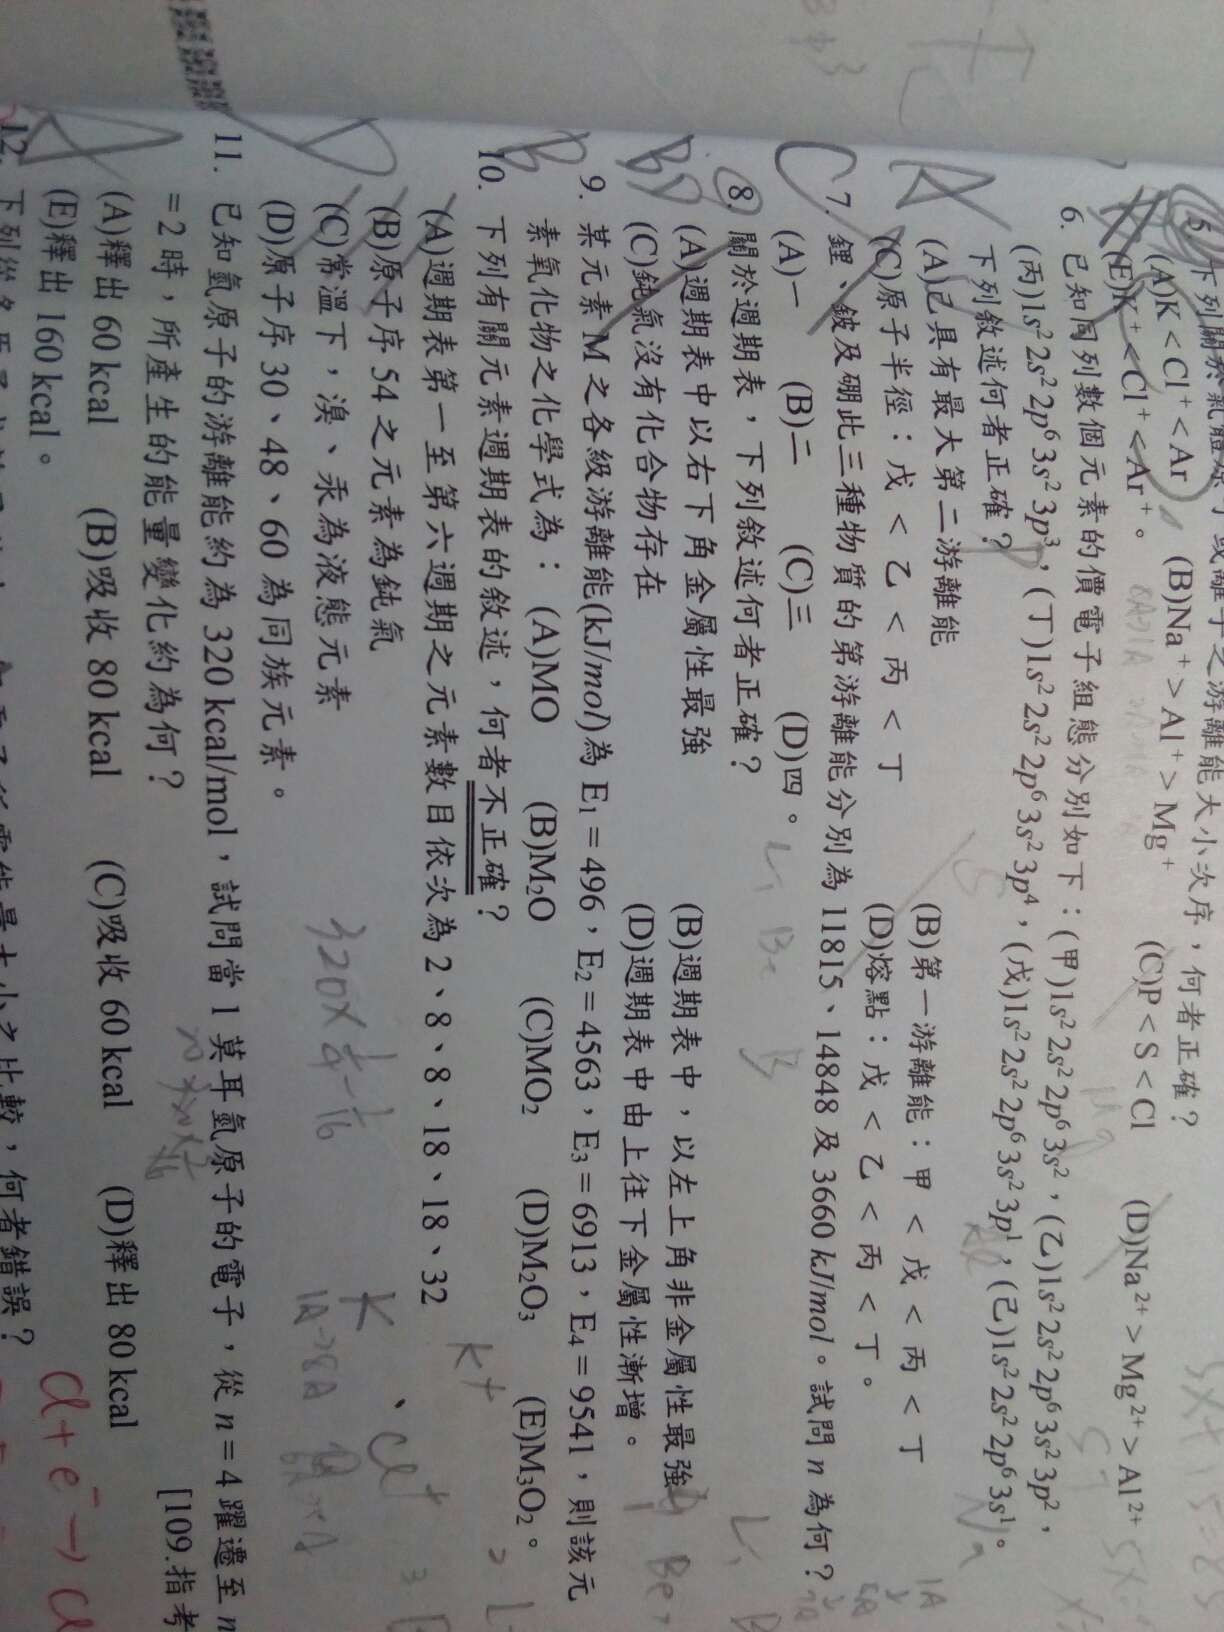 下列關於氣體原子或離子之游離能大小次序，何者正確？
(A)K＜Cl⁺＜Ar (B)Na⁺＞Al⁺＞Mg⁺ (C)P＜S＜Cl (D)Na²⁺＞Mg²⁺＞Al²⁺
(E)K⁺＜Cl⁺＜Ar⁺。
6. 已知同列數個元素的價電子組態分別如下：(甲)1s²2s²2p⁶3s²，(乙)1s²2s²2p⁶3s²3p²，
(丙)1s²2s²2p⁶3s²3p³，(丁)1s²2s²2p⁶3s²3p⁴，(戊)1s²2s²2p⁶3s²3p¹，(己)1s²2s²2p⁶3s¹。
下列敘述何者正確？
(A)己具有最大第二游離能 (B)第一游離能：甲＜戊＜丙＜丁
(C)原子半徑：戊＜乙＜丙＜丁 (D)熔點：戊＜乙＜丙＜丁。
7. 鋰、鈹及硼此三種物質的第游離能分別為 11815、14848 及 3660 kJ/mol。試問 n 為何？
(A)一 (B)二 (C)三 (D)四。
8. 關於週期表，下列敘述何者正確？
(A)週期表中以右下角金屬性最強 (B)週期表中，以左上角非金屬性最強
(C)鈍氣沒有化合物存在 (D)週期表中由上往下金屬性漸增。
9. 某元素 M 之各級游離能(kJ/mol)為 E₁＝496，E₂＝4563，E₃＝6913，E₄＝9541，則該元
素氧化物之化學式為： (A)MO (B)M₂O (C)MO₂ (D)M₂O₃ (E)M₃O₂。
10. 下列有關元素週期表的敘述，何者不正確？
(A)週期表第一至第六週期之元素數目依次為 2、8、8、18、18、32
(B)原子序 54 之元素為鈍氣
(C)常溫下，溴、汞為液態元素
(D)原子序 30、48、60 為同族元素。
11. 已知氫原子的游離能約為 320 kcal/mol，試問當 1 莫耳氫原子的電子，從 n＝4 躍遷至 n
＝2 時，所產生的能量變化約為何？ [109.指考
(A)釋出 60 kcal (B)吸收 80 kcal (C)吸收 60 kcal (D)釋出 80 kcal
(E)釋出 160 kcal。
12.
何者錯誤？
A
C
B
D
Li Be B
K
K⁺
Cl⁺
Na
Cl + e⁻ → Cl